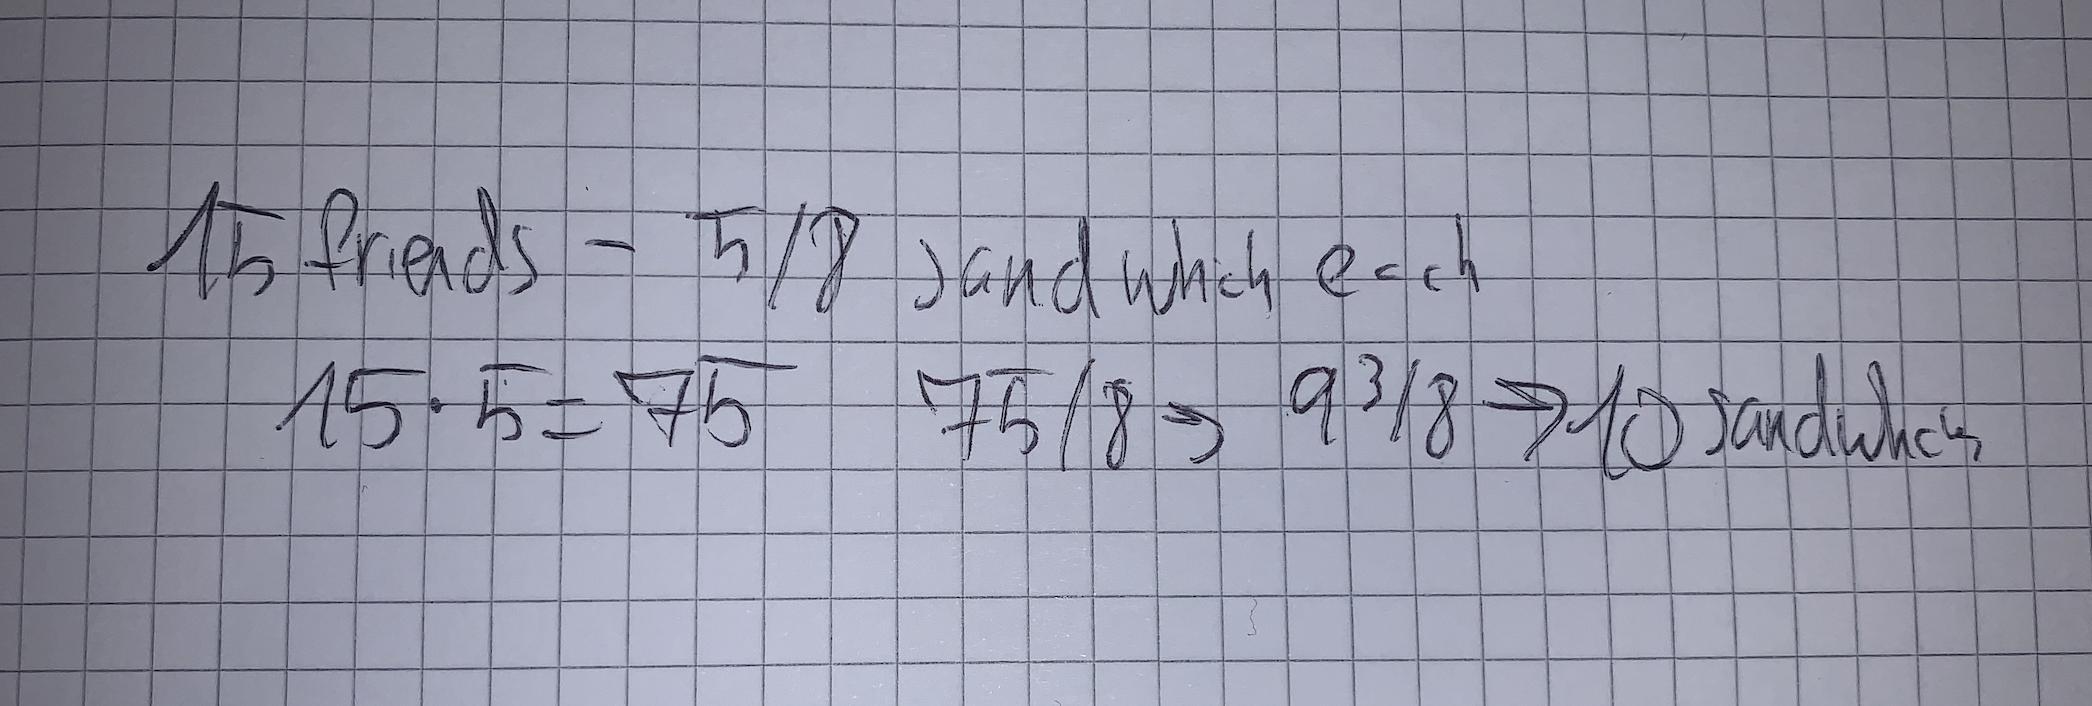 15 friends - 5/8 sandwhich each
15 · 5 = 75 75/8 → 9 3/8 → 10 sandwhichs